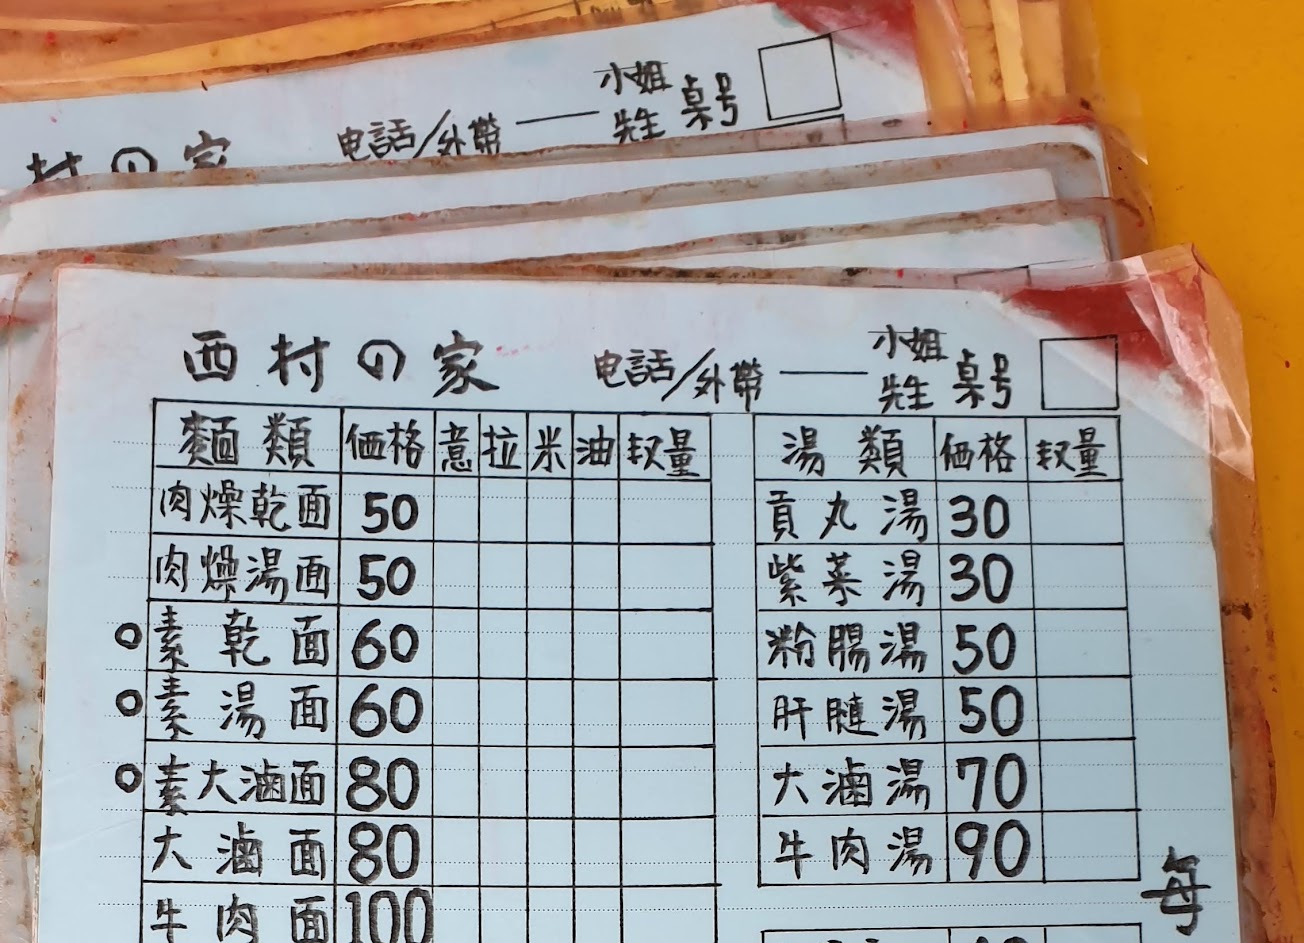 小姐
电話/外帶 —— 先生 桌号
村の家
西村の家 电話/外帶 —— 小姐 先生 桌号
麵類 価格 意 拉 米 油 数量
肉燥乾面 50
肉燥湯面 50
素乾面 60
素湯面 60
素大滷面 80
大滷面 80
牛肉面 100
湯類 価格 数量
貢丸湯 30
紫菜湯 30
粉腸湯 50
肝膗湯 50
大滷湯 70
牛肉湯 90
每